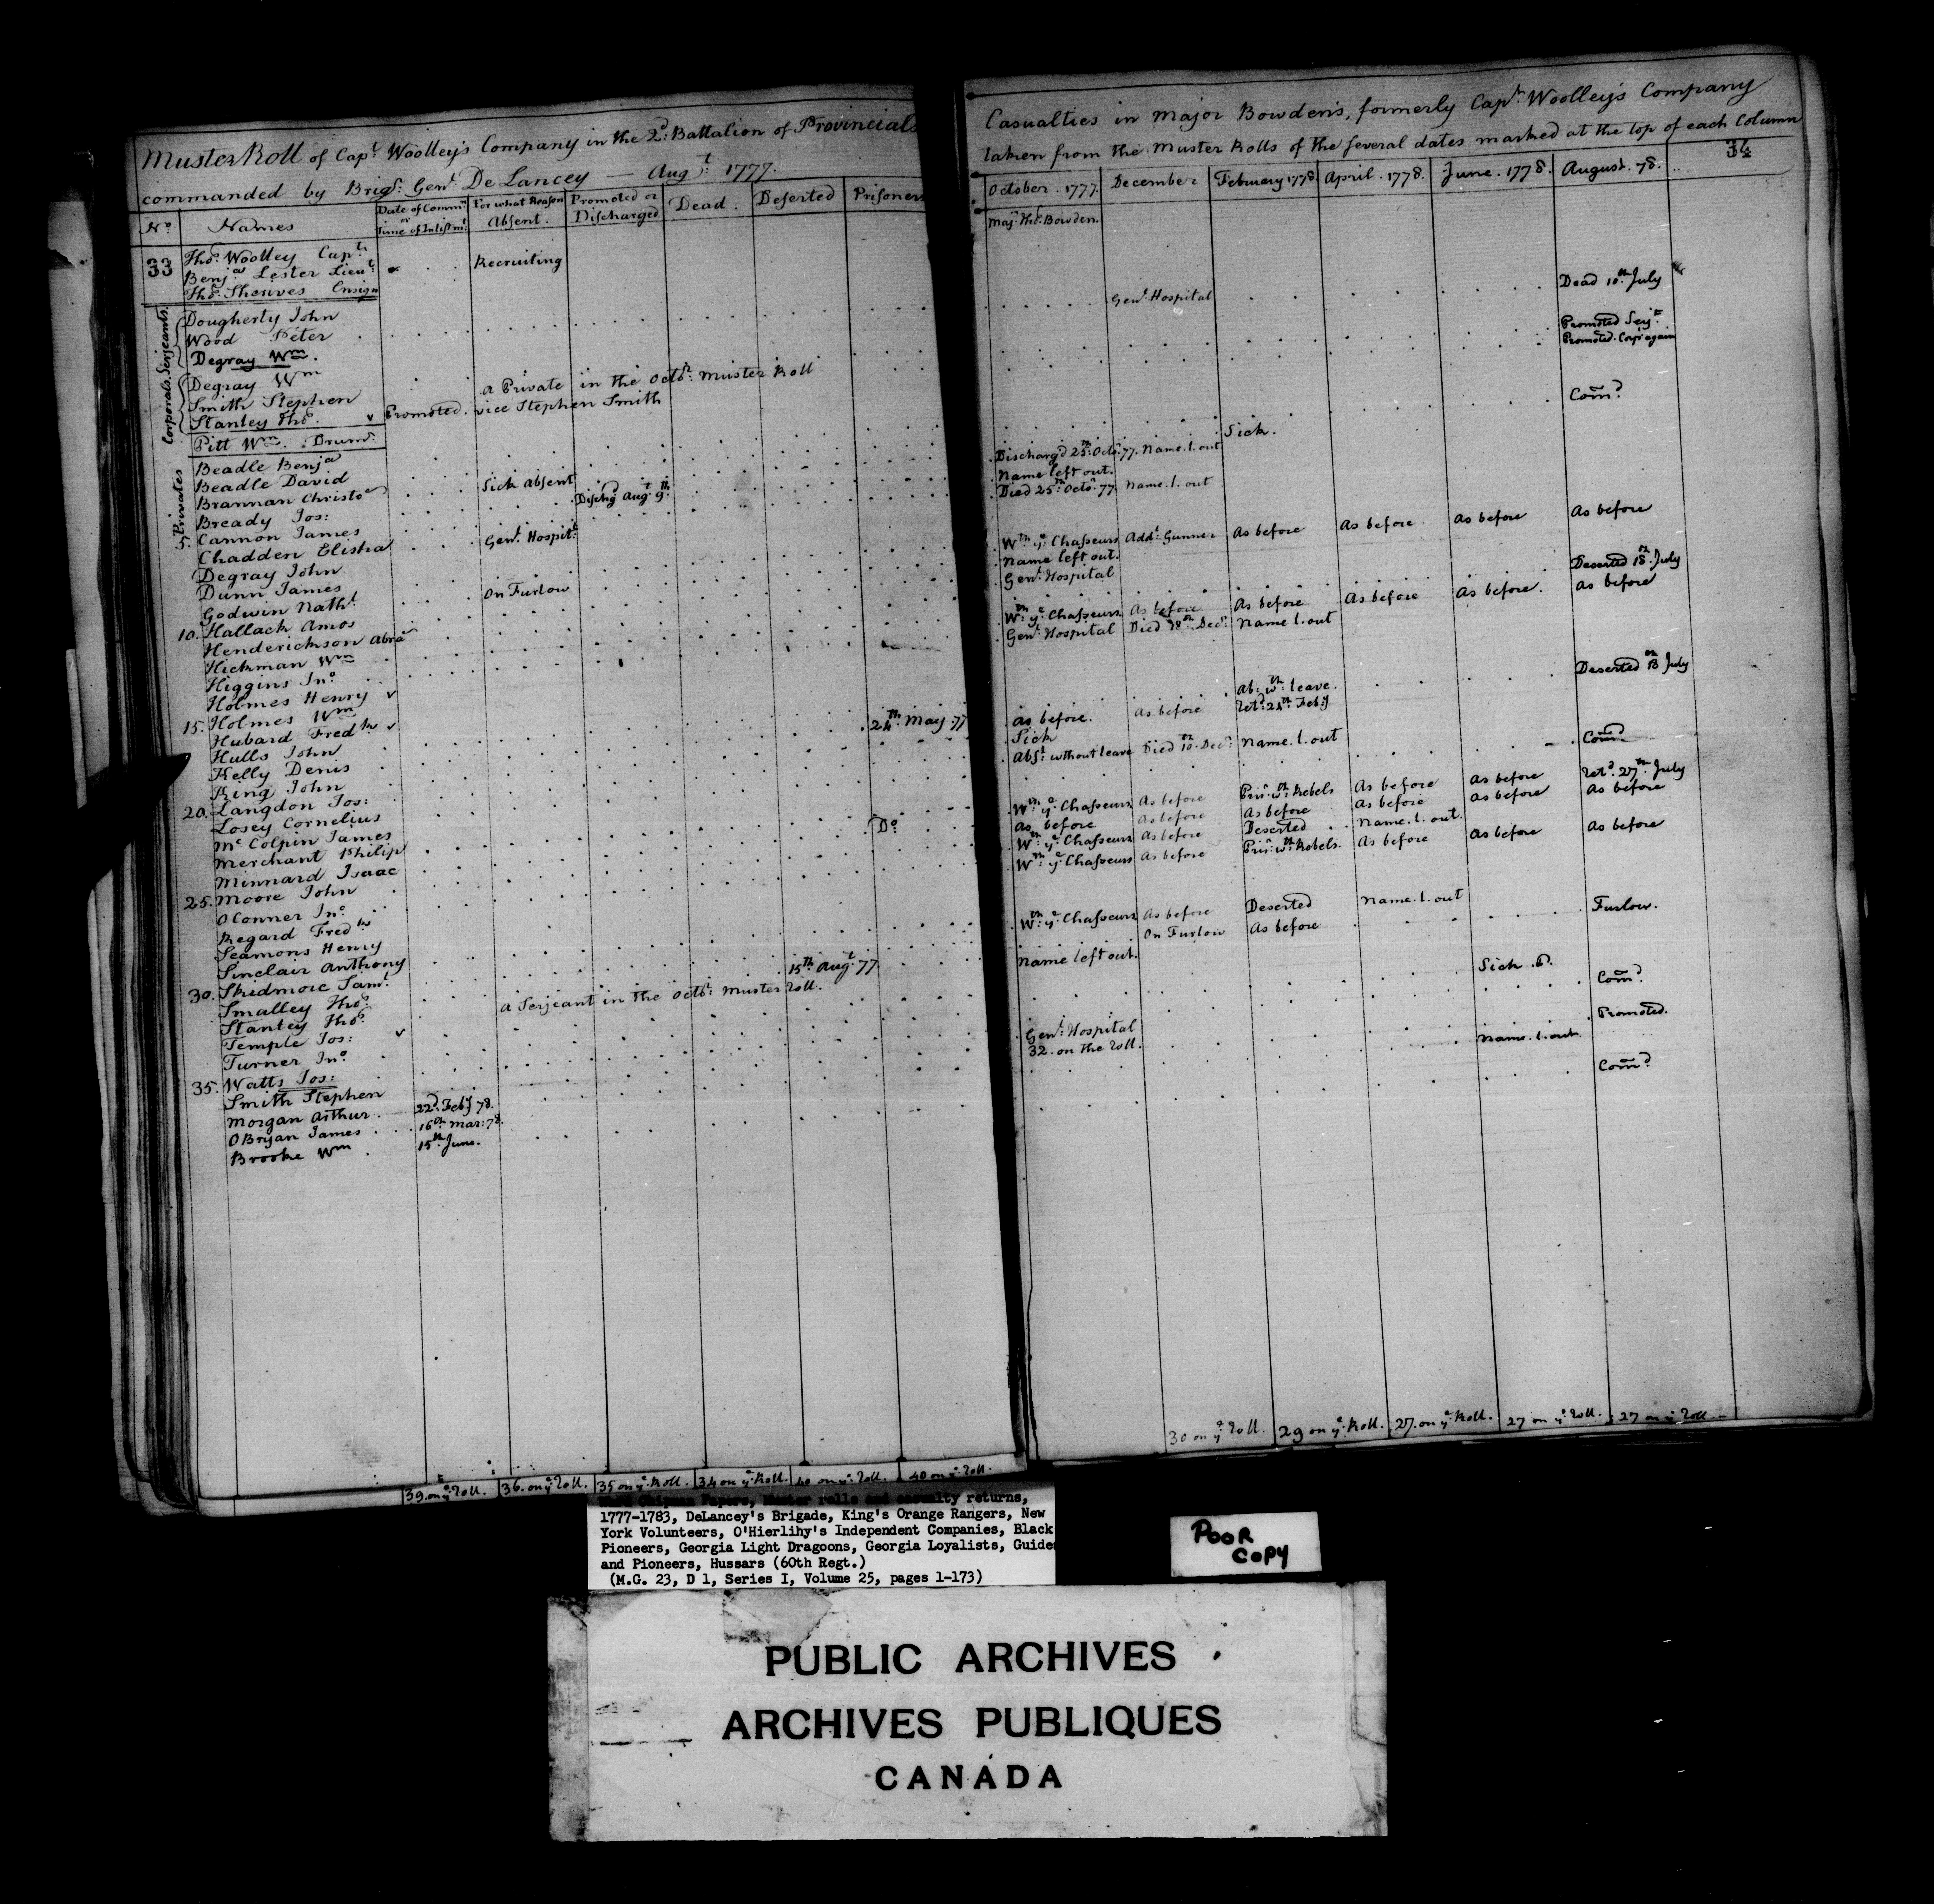 Muster Roll of Capt. Woolley's Company in the 2d. Battalion of Provincials
commanded by Brigr. Genl. DeLancey — Augt. 1777.
No. Names Date of Commn. or Time of Inlistmt. For what Reason Absent. Promoted or Discharged Dead. Deserted Prisoners
33 Thos. Woolley Capt. Recruiting
Benja. Lester Lieut.
Thos. Sherives Ensign
Serjeants.
Dougherty John
Wood Peter
Degray Wm.
Corporals.
Degray Wm a Private in the Octr. Muster Roll
Smith Stephen
Stanley Thos. v Promoted. vice Stephen Smith
Pitt Wm. Drumr.
Privates
Beadle Benja
Beadle David
Brannan Christor Sick Absent
Bready Jos: Dischg'd Augt. 9th.
5. Cannon James
Chadden Elisha Genl. Hospitl.
Degray John
Dunn James
Godwin Nathl. On Furlow
10. Hallack Amos
Henderickson Abrm
Hickman Wm
Higgins Jno.
Holmes Henry v
15. Holmes Wm
Hubard Fredk v 24th. May. 77
Hulls John
Kelly Denis
King John
20. Langdon Jos:
Losey Cornelius
McColpin James Do.
Merchant Philip
Minnard Isaac
25. Moore John
OConner Jno.
Regard Fredk
Seamons Henry
Sinclair Anthony
30. Skidmore Saml. 15th. Augt. 77
Smalley Thos.
Stanley Thos. a Serjeant in the Octr. Muster Roll.
Temple Jos: v
Turner Jno.
35. Watts Jos:
Smith Stephen
Morgan Arthur. 22d. Feby 78.
OBryan James 16th Mar: 78.
Brooke Wm. 15th June.
39. on ye. Roll. 36. on ye. Roll. 35 on ye. Roll. 34 on ye. Roll. 40 on ye. Roll. 40 on ye. Roll.
Casualties in Major Bowden's, formerly Capt. Woolley's Company
taken from the Muster Rolls of the several dates marked at the top of each Column
34
October. 1777. December February 1778 April. 1778. June. 1778. August. 78.
Majr. Thos. Bowden.
Genl. Hospital Dead 10th. July
Promoted Serjt.
Promoted. Corpl again
Com'd.
Sick.
Discharg'd 25th. Octr. 77. Name. l. out
Name left out.
Died 25th. Octr. 77 Name. l. out
Wth. ye. Chasseurs Addl. Gunner As before As before As before As before
Name left out.
Genl. Hospital Deserted 18th. July
Wth. ye. Chasseurs As before As before As before As before. As before
Genl. Hospital Died 28th. Decr. Name l. out
Deserted 13th July
Ab: wt. leave.
as before. as before Retd. 24th. Feby
Sick
Abst. without leave Died 10th. Decr. Name. l. out Com'd
Wth. ye. Chasseurs As before Prisr. wth. Rebels As before As before Retd. 27th. July
As before As before As before As before As before As before
Wth. ye. Chasseurs As before Deserted Name. l. out.
Wth. ye. Chasseurs As before Prisr. wth. Rebels. As before As before As before
Wth. ye. Chasseurs As before Deserted Name. l. out
On Furlow As before Furlow.
Name left out.
Sick
Com'd.
Genl. Hospital Promoted.
32. on the Roll. Name. l. out
Com'd.
30 on ye. Roll. 29 on ye. Roll. 27. on ye. Roll. 27 on ye. Roll. 27 on ye. Roll
Ward Chipman Papers, Muster rolls and casualty returns,
1777-1783, DeLancey's Brigade, King's Orange Rangers, New
York Volunteers, O'Hierlihy's Independent Companies, Black
Pioneers, Georgia Light Dragoons, Georgia Loyalists, Guides
and Pioneers, Hussars (60th Regt.)
(M.G. 23, D 1, Series I, Volume 25, pages 1-173)
POOR COPY
PUBLIC ARCHIVES
ARCHIVES PUBLIQUES
CANADA